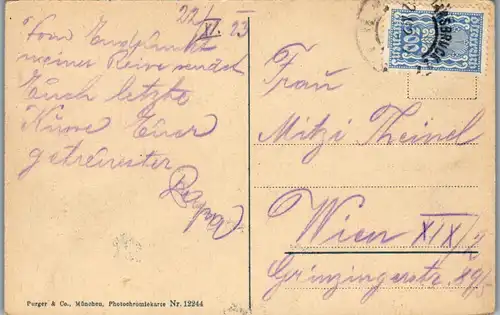 22/XI. 23
Vom Endpunkt
meiner Reise sendet
Euch letzte
Küsse Euer
getreuester
Papa
Frau
Mitzi Theinel
Wien XIX/2
Grinzingerstr.
INNSBRUCK
500
Purger & Co., München, Photochromiekarte Nr. 12244